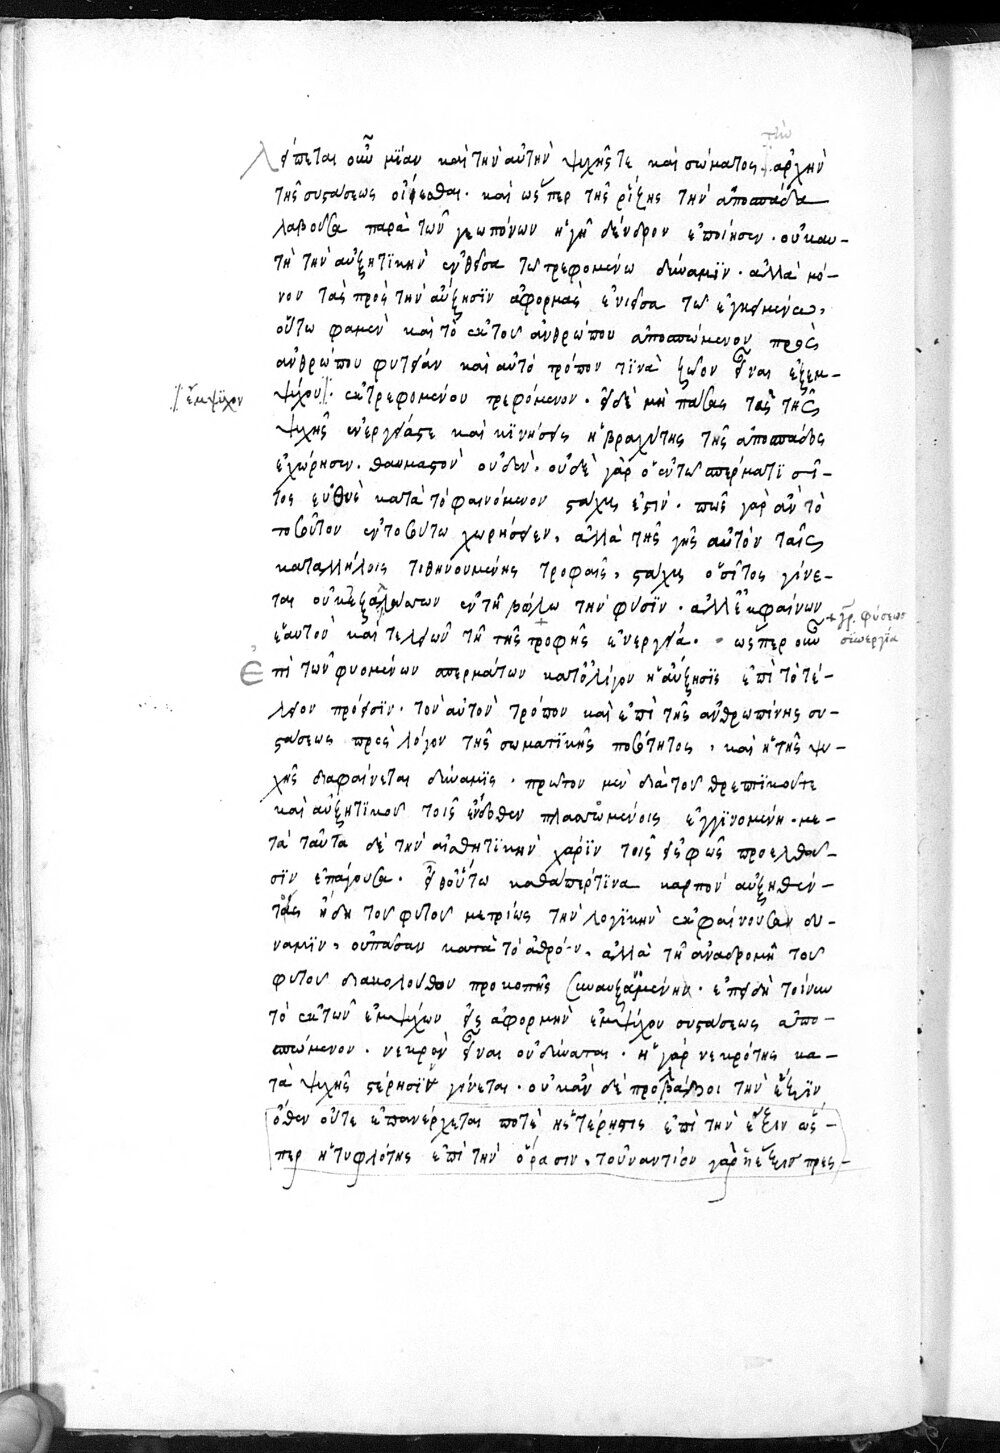 τὴν
λείπεται οὖν μίαν καὶ τὴν αὐτὴν ψυχῆς τε καὶ σώματος ἀρχὴν
τῆς συστάσεως οἴεσθαι. καὶ ὥσπερ τῆς ῥίζης τὴν ἀποσπάδα
λαβοῦσα παρὰ τῶν γεωπόνων ἡ γῆ δένδρον ἐποίησεν. οὐκ αυ-
τὴ τὴν αὐξητικὴν ἐνθεῖσα τῶ τρεφομένω δύναμιν. ἀλλὰ μό-
νον τὰς πρὸς τὴν αὔξησιν ἀφορμὰς ἐνιεῖσα τῶ ἐγκειμένω,
οὕτω φαμὲν καὶ τὸ ἐκ τοῦ ἀνθρώπου ἀποσπώμενον πρὸς
ἀνθρώπου φυτείαν καὶ αὐτὸ τρόπον τινὰ ζῶον εἶναι ἐξ ἐμ-
ἔμψυχον
ψύχου. ἐκ τρεφομένου τρεφόμενον. εἰ δὲ μὴ πάσας τὰς τῆς
ψυχῆς ἐνεργείας τε καὶ κινήσεις ἡ βραχύτης τῆς ἀποσπάδος
ἐχώρησεν. θαυμαστὸν οὐδὲν. οὐδὲ γὰρ ὁ ἐν τῶ σπέρματι σῖ-
τος εὐθὺς κατὰ τὸ φαινόμενον στάχυς ἐστίν. πῶς γὰρ ἂν τὸ
τοσοῦτον ἐν τοσούτω χωρήσειεν, ἀλλὰ τῆς γῆς αὐτὸν ταῖς
καταλλήλοις τιθηνουμένης τροφαῖς, στάχυς ὁ σῖτος γίνε-
ται οὐκ ἐξαλλάσσων ἐν τῆ βώλω τὴν φύσιν. ἀλλ' ἐκφαίνων
+ γρ. φύσεως
συνεργία
ἑαυτὸν καὶ τελειῶν τῆ τῆς τροφῆς ἐνεργεία. ὥσπερ οὖν
Ἐπὶ τῶν φυομένων σπερμάτων κατ' ὀλίγον ἡ αὔξησις ἐπὶ τὸ τέ-
λειον πρόεισιν. τὸν αὐτὸν τρόπον καὶ ἐπὶ τῆς ἀνθρωπίνης συ-
στάσεως πρὸς λόγον τῆς σωματικῆς ποσότητος, καὶ ἡ τῆς ψυ-
χῆς διαφαίνεται δύναμις. πρῶτον μὲν διὰ τοῦ θρεπτικοῦ τε
καὶ αὐξητικοῦ τοῖς ἔνδοθεν πλασσομένοις ἐγγινομένη. με-
τὰ ταῦτα δὲ τὴν αἰσθητικὴν χάριν τοῖς εἰς φῶς προελθοῦ-
σιν ἐπάγουσα. εἶθ' οὕτω καθάπερ τινα καρπὸν αὐξηθέν-
τος ἤδη τοῦ φυτοῦ μετρίως τὴν λογικὴν ἐκφαίνουσαν δύ-
ναμιν, οὐ πᾶσαν κατὰ τὸ ἀθρόον, ἀλλὰ τῆ ἀναδρομῆ τοῦ
φυτοῦ διακολούθου προκοπῆς συναυξαμένην. ἐπειδὴ τοίνυν
τὸ ἐκ τῶν ἐμψύχων εἰς ἀφορμὴν ἐμψύχου συστάσεως ἀπο-
σπώμενον. νεκρὸν εἶναι οὐ δύναται. ἡ γὰρ νεκρότης κα-
τὰ ψυχῆς στέρησιν γίνεται. οὐκ ἂν δὲ προλάβοι τὴν ἕξιν
ὅθεν οὔτε ἐπανέρχεται ποτὲ ἡ στέρησις ἐπὶ τὴν ἕξιν ὥσ-
περ ἡ τυφλότης ἐπὶ τὴν ὅρασιν, τοὐναντίον γὰρ ἡ ἕξις πρες-